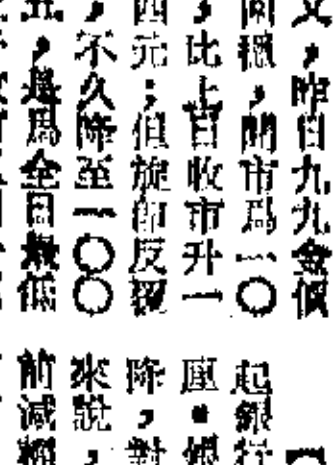 ,昨日九九金價
向穩,開市爲一〇
,比上日收市升一
四元;但旋即反覆
,不久降至一〇〇
,是爲全日最低
起銀行
厘。
降,對
來說,
前減輕